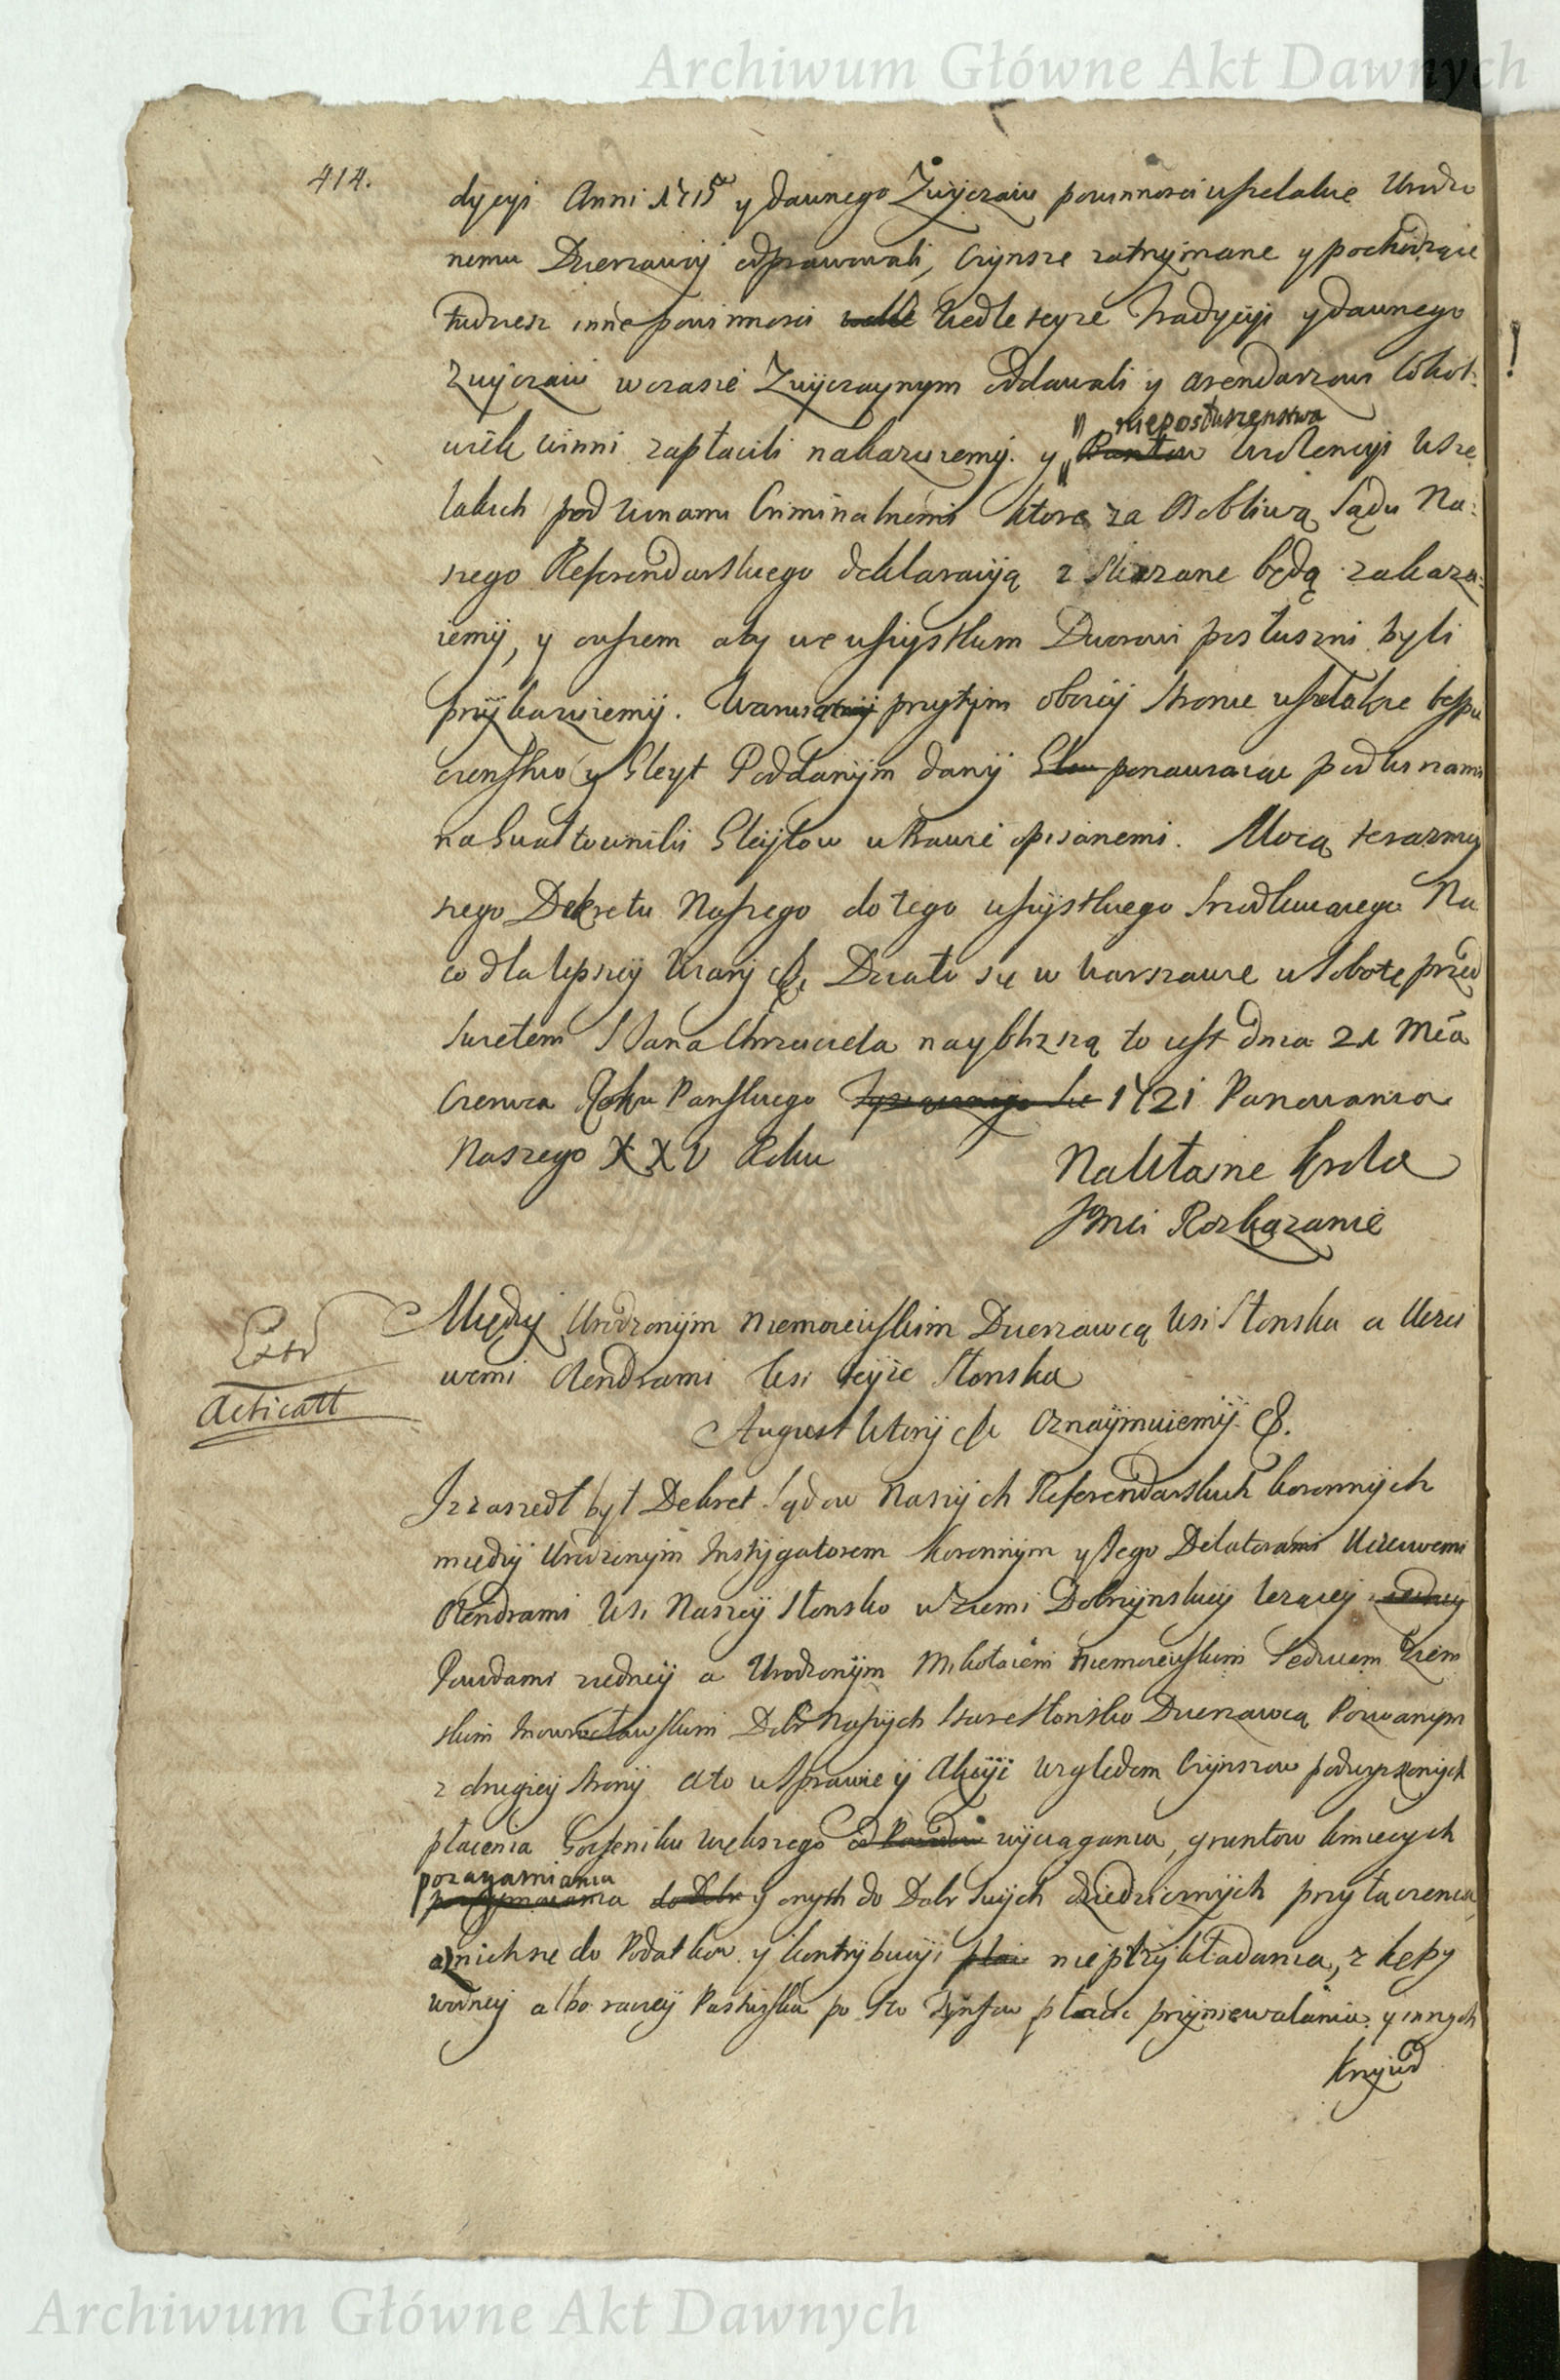 Archiwum Główne Akt Dawnych
414.
dycyi Anni 1715 y dawnego Zwyczaiu powinnosci wszelakie Urodzo
nemu Dzierzawcy odprawowali, Czynsze zatrzymane y pochodzące
tudziesz inne powinnosci wedle teyze Tradycyi y dawnego
zwyczaiu w czasie Zwyczaynym oddawali y arendarzowi cokol:
wiek winni zapłacili nakazuiemy. y nieposłuszenstwa Violencyi wsze
lakich pod winami Criminalnemi ktore za Osobliwą Sądu Na:
szego Referendarskiego deklaracyą zkazane będą zakazu:
iemy, y owszem aby we wszystkim Dworowi posłuszni byli
przykazuiemy. Waruiąc przytym obocy stronie wszelakie bespie
czenstwo y Gleyt Poddanym dany ponawiaiąc pod winami
na Gwałtownikи Gleytow w Prawie opisanemi. Mocą terazniey
szego Dekretu Naszego do tego wszystkiego
co dla lepszey Wiary &c. Działo się w Warszawie w Sobotę przed
Swietem S Jana Chrzciciela nayblizszą to iest dnia 21 Mca
Czerwca Roku Panskiego 1721 Panowania
Naszego XXV Roku
Na Własne Krola
Jmci Rozkazanie
Extr
Acticatt
Między Urodzonym Niemoiewskim Dzierzawcą Wsi Słonska a Uczci
wemi Olendrami Wsi teyze Słonska
August Wtory &c Oznaymuiemy &.
Iz zaszedł był Dekret Sądow Naszych Referendarskich Koronnych
między Urodzonym Instygatorem Koronnym y Jego Delatorami Uczciwemi
Olendrami Wsi Naszey Słonsko w Ziemi Dobrzynskiey lezącey
Powodami z iedney a Urodzonym Mikołaiem Niemoiewskim Sędziem Ziem
skim Inowrocławskim Dobr Naszych Stare Słonsko Dzierzawcą Pozwanym
z drugiey strony a to w Sprawie y Akcyi względem Czynszow podwyzszonych
płacenia wiekszego wyciągania, gruntow kmiecych
pozagarniania y onych do Dobr Swych dziedzicznych przyłączenia
a z nich się do Podatkow y kontrybucyi nieprzykładania, z kępy
wodney albo raczey Pastwiska po sto Tynfow płacic przyniewalania y innych
krzywd
Archiwum Główne Akt Dawnych